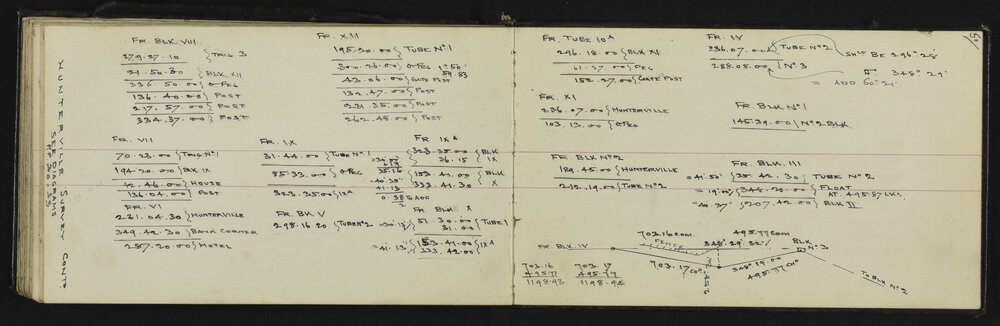 HUNTERVILLE SURVEY CONT.
SEE DIAGRAMS
FR. BLK. VIII
279.27.10 } TRIG. 3
21.50.30 } BLK. XII
336.50.00 } O PEG
136.40.00 } POST
217.57.00 } POST
334.37.00 } POST
FR. XII
195.20.00 } TUBE No 1
300.26.00 } O PEG 1° 50'
43.06.00 } GATE POST 59.83
132.47.00 } POST
231.35.00 } POST
262.48.00 } POST
FR. VII
70.23.00 } TRIG No 1
194.20.00 } BLK IX
42.46.00 } HOUSE
136.04.00 } POST
FR. VI
231.04.30 } HUNTERVILLE
349.42.30 } BANK CORNER
257.20.00 } HOTEL
FR. IX
31.44.00 } TUBE No 1
85.33.00 } O PEG
323.35.00 } IX A
FR. BK V
298.16.20 } TUBE No 2
FR IX A
323.35.00 } BLK
36.15 } IX
35.16 } 153.41.00 } BLK
333.41.30 } X
41.13
0.38 ADD
FR. BLK. X
51.30.00 } TUBE 1
31.00
= 41.13' } 153.41.00 } IX A
333.42.00
50
FR. TUBE 10A
296.18.00 } BLK XI
61.27.00 } PEG
152.27.00 } GATE POST
FR. IV
236.07.00 } TUBE No 2 } SHLD BE 296° 28'
288.08.00 } No 3 348° 29'
= ADD 60° 21
FR. XI
236.07.00 } HUNTERVILLE
103.13.00 } O PEG
FR. BLK No 1
145.39.00 } No 2 BLK.
FR. BLK No 2
189.45.00 } HUNTERVILLE
212.19.00 } TUBE No 2
FR. BLK. III
= 41.50' } 35.42.30 } TUBE No 2
= 19.00' } 348.20.00 } FLOAT
AT. 495.87 LKS.
= 40.27' } 207.42.00 } BLK II
FR. BLK. IV
703.16 COM. 495.77 COM
FENCE 348°.29'.32"
BLK No 3
703.17 CHD 348°.19.00
495.77 CHD
TO BLK No 2
703.16 703.17
495.77 495.77
1198.93 1198.94